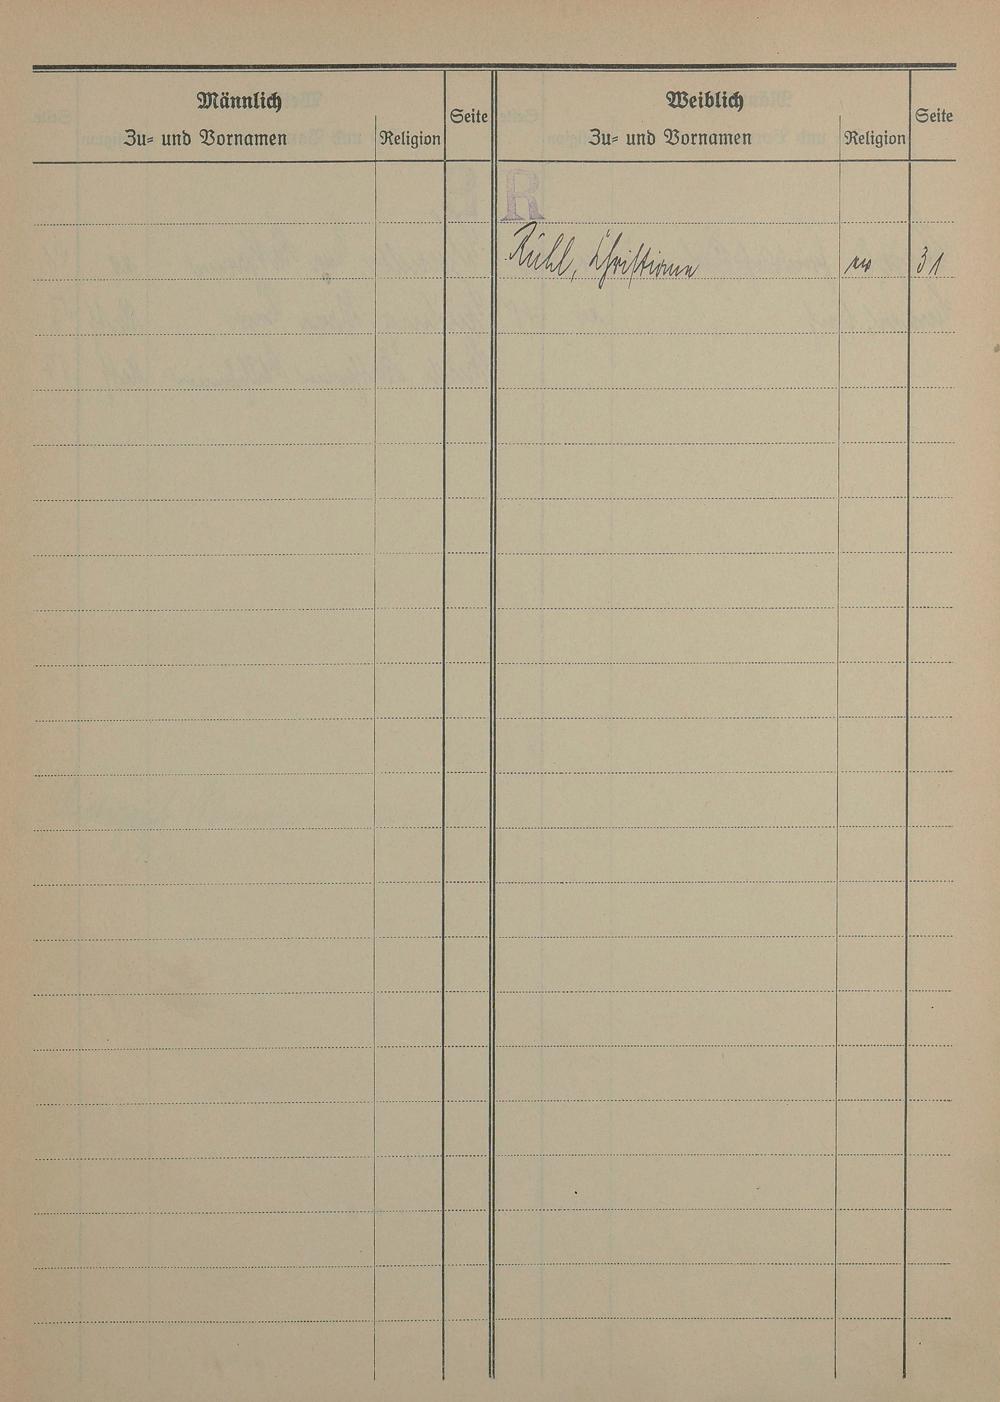 Männlich
Zu= und Vornamen
Religion
Seite
Weiblich
Zu= und Vornamen
Religion
Seite
R
Rühl, Christiane
ev
31